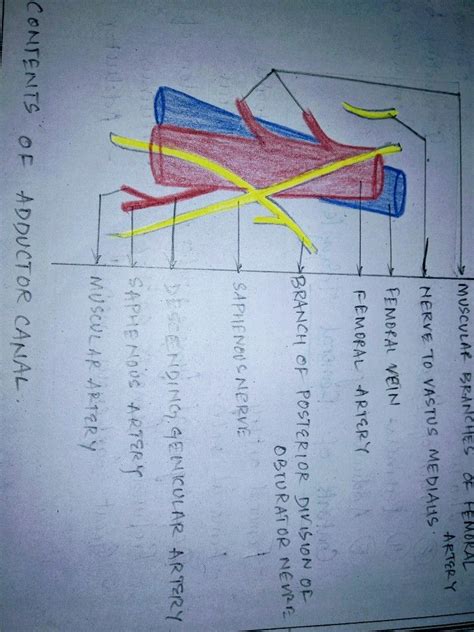 MUSCULAR BRANCHES OF FEMORAL
ARTERY
NERVE TO VASTUS MEDIALIS.
FEMORAL VEIN
FEMORAL ARTERY
BRANCH OF POSTERIOR DIVISION OF
OBTURATOR NEVRE
SAPHENOUS NERVE
DESCENDING GENICULAR ARTERY
SAPHENOUS ARTERY
MUSCULAR ARTERY
CONTENTS OF ADDUCTOR CANAL.